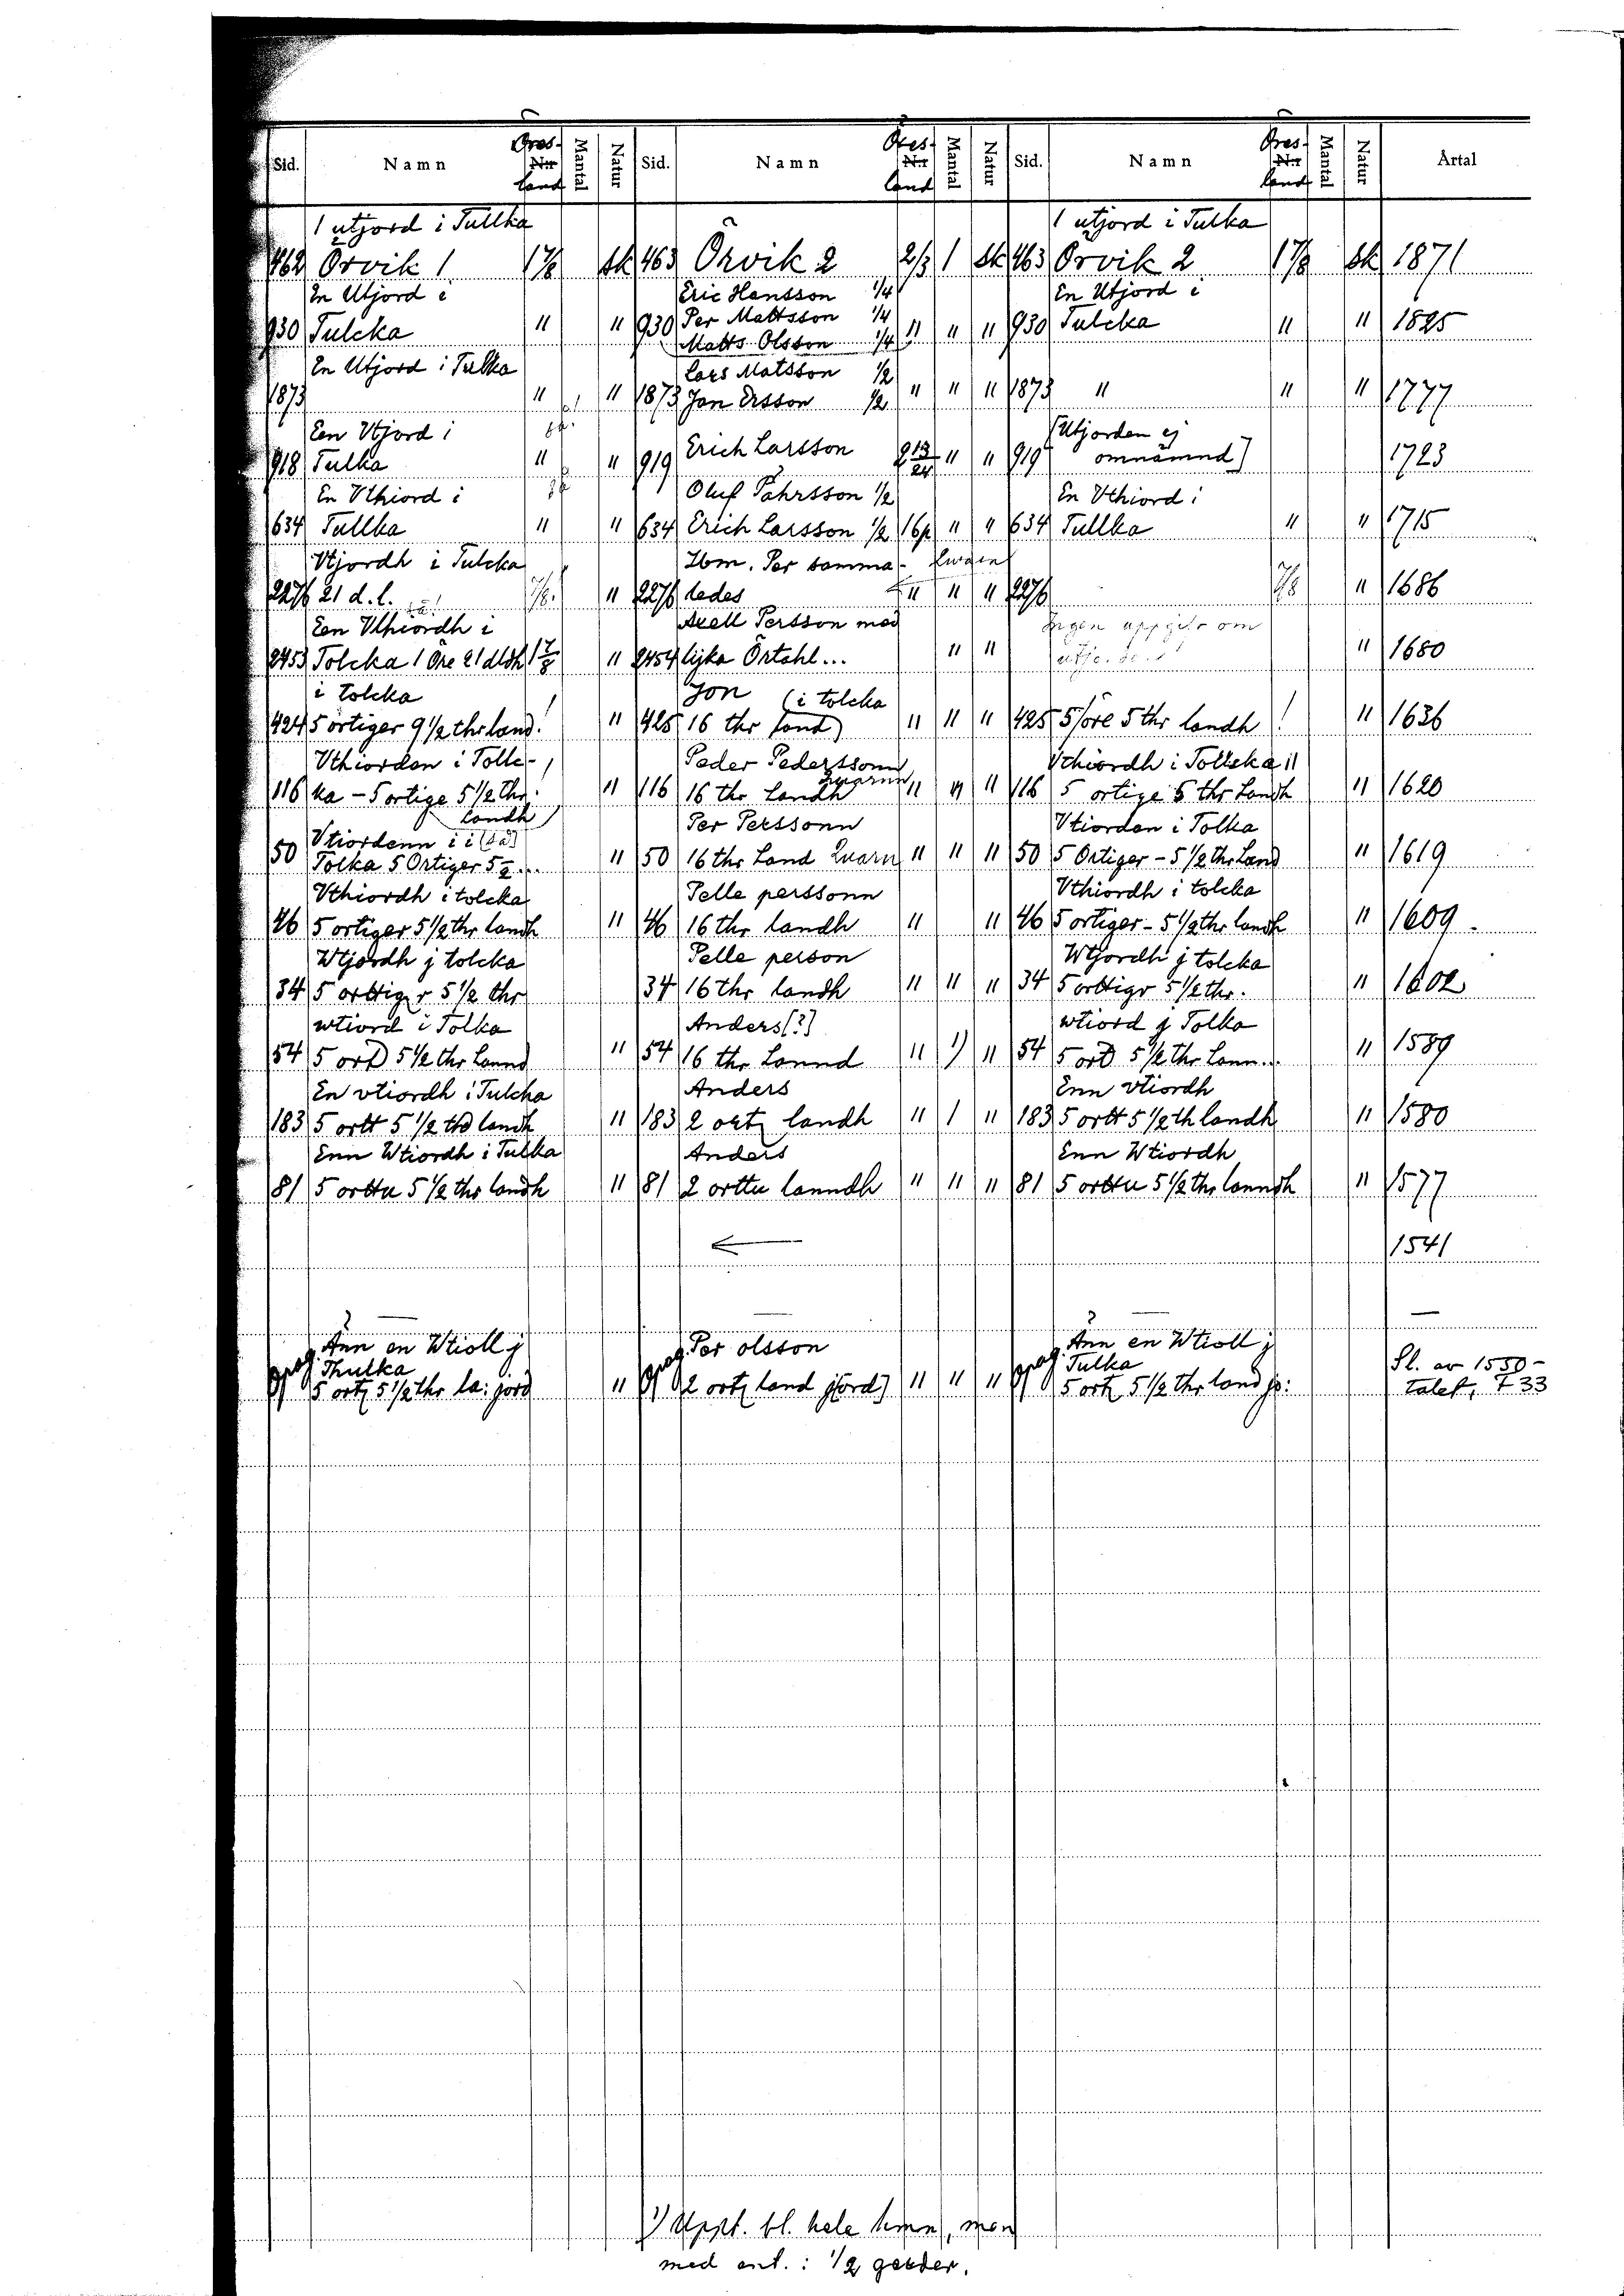 Sid. Namn Öres- Nr land Mantal Natur Sid. Namn Öres- Nr land Mantal Natur Sid. Namn Öres- Nr land Mantal Natur Årtal
1 utjord i Tullka 1 utjord i Tulka
462 Örvik 1 1 7/8 sk 463 Örvik 2 2/3 1 sk 463 Örvik 2 1 7/8 sk 1871
En Utjord i Eric Hansson 1/4 En Utjord i
930 Tulcka " " 930 Per Mattsson 1/4 " " " 930 Tulcka " " 1825
Matts Olsson 1/4
En Utjord i Tulka Lars Matsson 1/2
1873 " " 1873 Jan Ersson 1/2 " " " 1873 " " " 1777
Een Utjord i [Utjorden ej
918 Tulka " " 919 Erich Larsson 2 13/24 " " 919 omnämnd] 1723
En Vthiord i Oluf Pährsson 1/2 En Vthiord i
634 Tullka " " 634 Erich Larsson 1/2 16p " " 634 Tullka " " 1715
Vtjordh i Tulcka Ibm. Per samma-
2276 21 d. l. 7/8. " 2276 ledes " " " 2276 7/8 " 1686
Een Vthiordh i Axell Persson med Ingen uppgift om
2453 Tolcka 1 Öre 21 dldh 1 7/8 " 2454 lijka Örtahl... " " " 1680
i tolcka Jon (i tolcka
424 5 örtiger 9 1/2 thr land! " 425 16 thr land) " " " 425 5/öre 5 thr landh ! " 1636
Vthiorden i Tolle- Peder Pederssonn Vthiordh i Tollcka
116 ka - 5 ortige 5 1/2 thr. " 116 16 thr Landh quarnn " " " 116 5 ortige 5 thr Landh " 1620
Landh Per Perssonn Vtiorden i Tolka
50 Vtiordenn i i (så) " 50 16 thr Land Quarn " " " 50 5 Ortiger - 5 1/2 thr Land " 1619
Tolka 5 Ortiger 5 1/2...
Vthiordh i tolcka Pelle perssonn Vthiordh i tolcka
46 5 ortiger 5 1/2 thr landh " 46 16 thr landh " " 46 5 ortiger - 5 1/2 thr landh " 1609.
Wtjordh j tolcka Pelle person Wtjordh j tolcka
34 5 orttiger 5 1/2 thr 34 16 thr landh " " " 34 5 orttigr 5 1/2 thr. " 1602
wtiord i Tolka Anders [?] wtiord j Tolka
54 5 ort 5 1/2 thr Lannd " 54 16 thr Lannd " 1) " 54 5 ort 5 1/2 thr Lann... " 1589
En vtiordh i Tulcka Anders Enn vtiordh
183 5 ortt 5 1/2 thr landh " 183 2 ortz landh " 1 " 183 5 ortt 5 1/2 th landh " 1580
Enn Wtiordh i Tulka Anders Enn Wtiordh
81 5 orttu 5 1/2 thr landh " 81 2 orttu lanndh " " " 81 5 orttu 5 1/2 thr lanndh " 1577
← 1541
— — — —
Änn en Wtioll j Per olsson Änn en Wtioll j
opag. Thulka opag. opag. Tulka Sl. av 1550-
5 ortz 5 1/2 thr la: jord " 2 ortz land j[ord] " " " 5 ortz 5 1/2 thr land jo: talet, F 33
1) Uppt. bl. hela hmn, men
med ant. : 1/2 gerder.